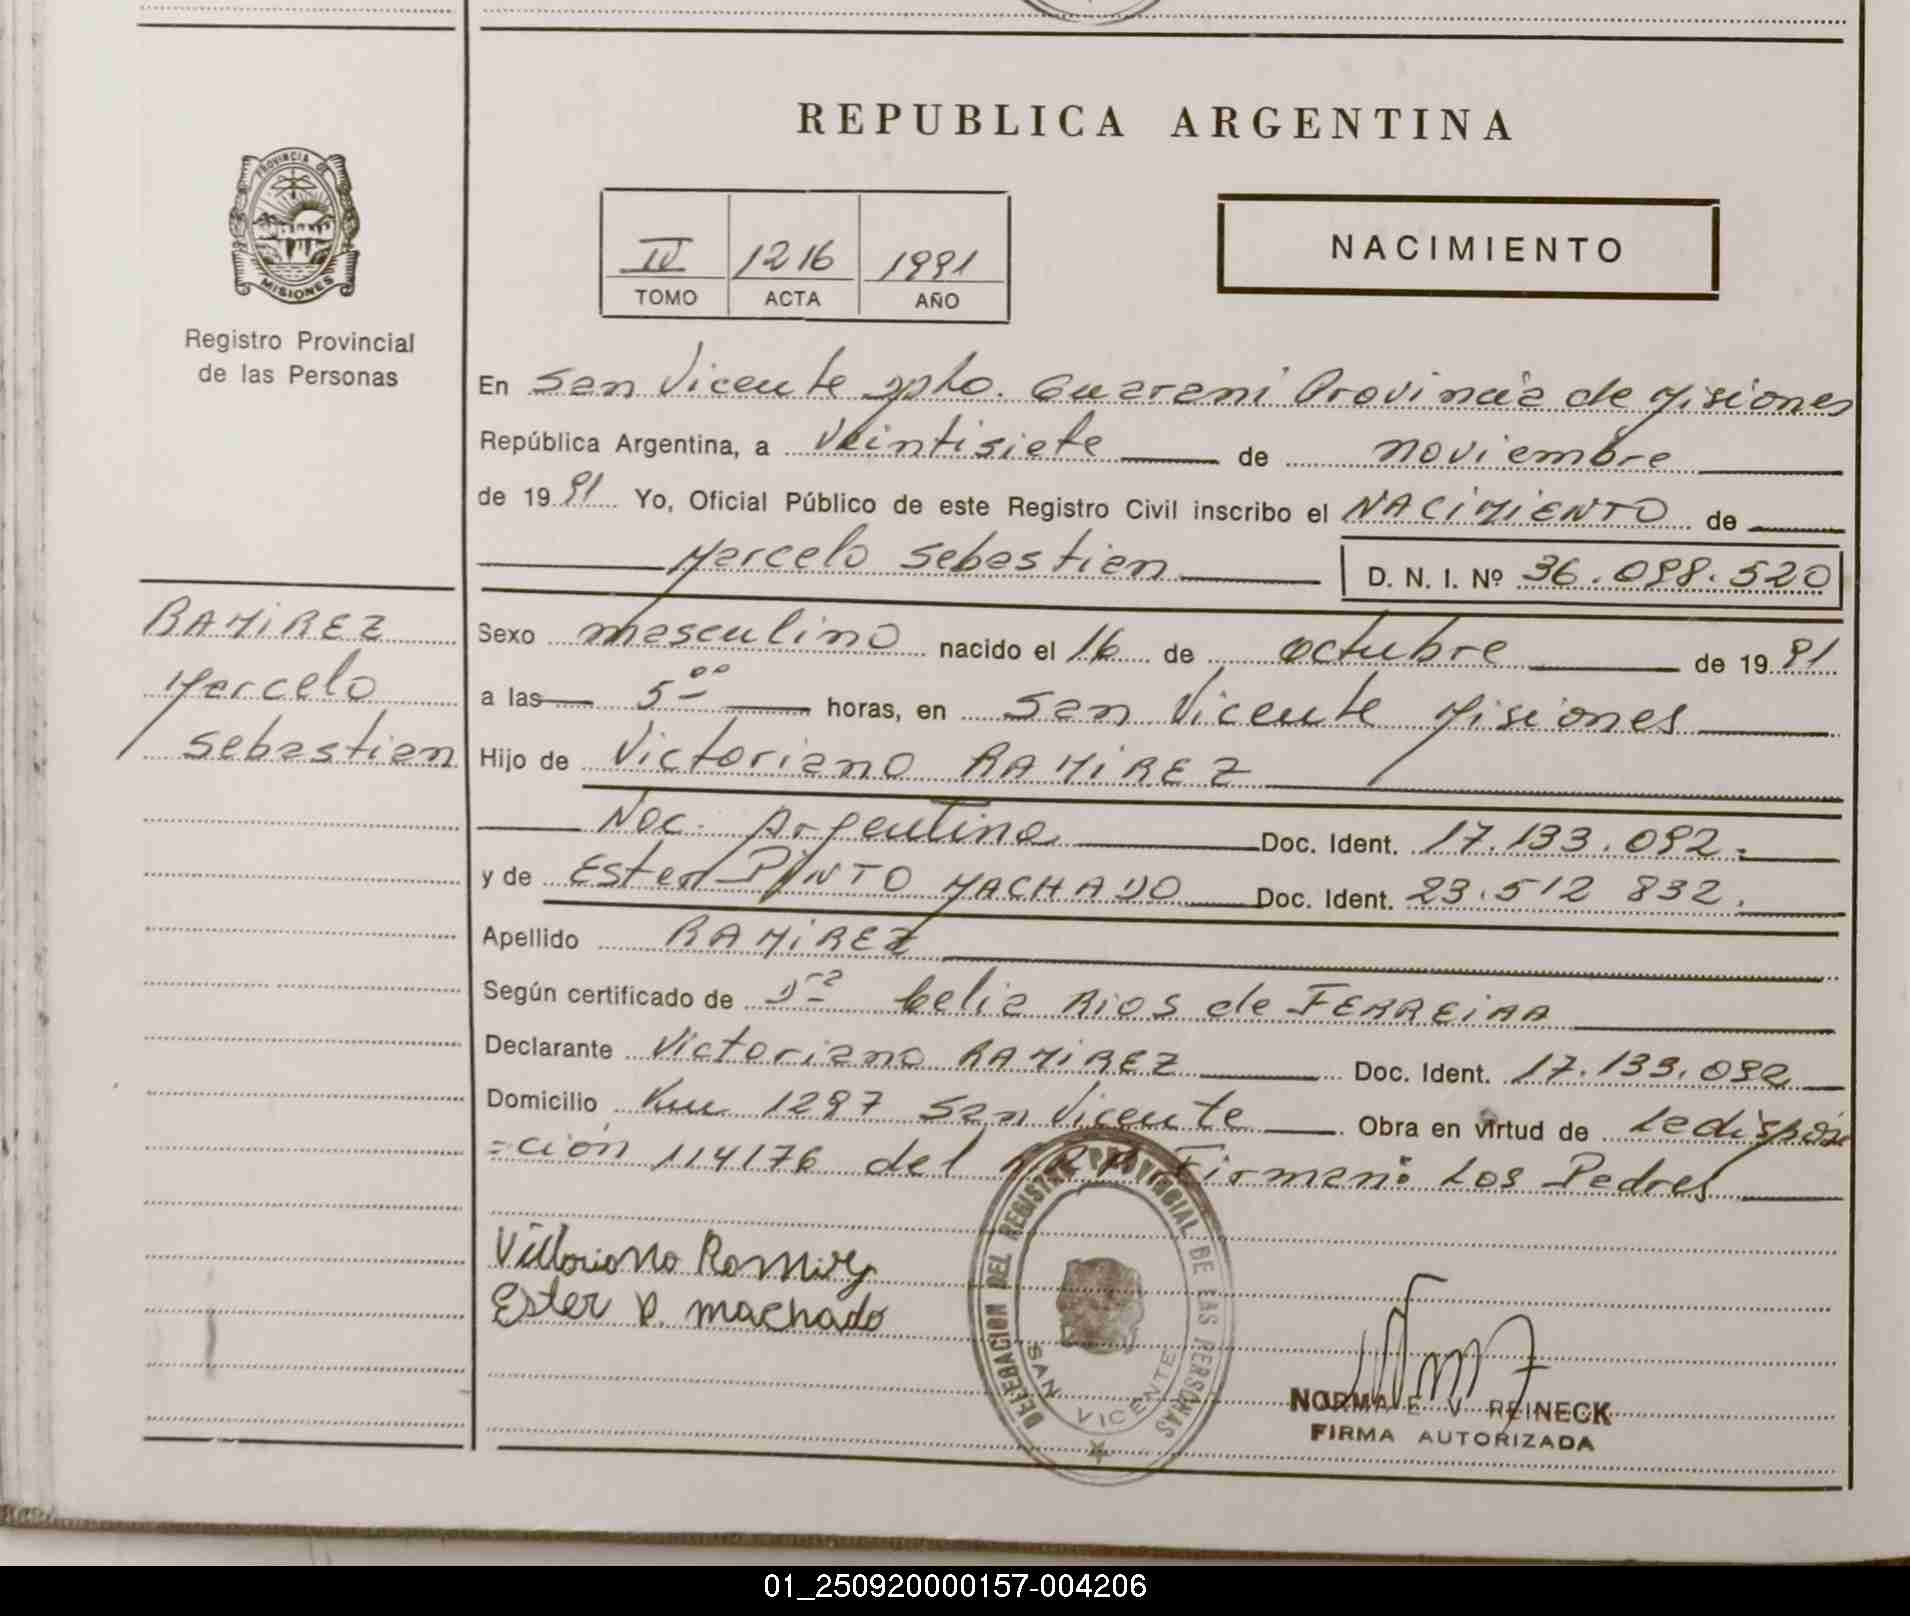 REPUBLICA ARGENTINA
PROVINCIA DE
MISIONES
Registro Provincial
de las Personas
IV 1216 1991
TOMO ACTA AÑO
NACIMIENTO
En San Vicente Dpto. Guaraní Provincia de Misiones
República Argentina, a veintisiete de noviembre
de 1991 Yo, Oficial Público de este Registro Civil inscribo el NACIMIENTO de
Marcelo Sebastian D. N. I. Nº 36.098.520
RAMIREZ
Marcelo
Sebastian
Sexo masculino nacido el 16 de octubre de 1991
a las 5 00 horas, en San Vicente Misiones
Hijo de Victoriano RAMIREZ
Nac. Argentina Doc. Ident. 17.133.092.
y de Ester PINTO MACHADO Doc. Ident. 23.512 832.
Apellido RAMIREZ
Según certificado de Dra Celia Rios de FERREIRA
Declarante Victoriano RAMIREZ Doc. Ident. 17.133.092
Domicilio Km 1297 San Vicente Obra en virtud de la disposi
=ción 114176 del Firman: Los Padres
Victoriano Ramirez
Ester P. machado
DELEGACION DEL REGISTRO PROVINCIAL DE LAS PERSONAS
SAN VICENTE
NORMA E V REINECK
FIRMA AUTORIZADA
01_250920000157-004206